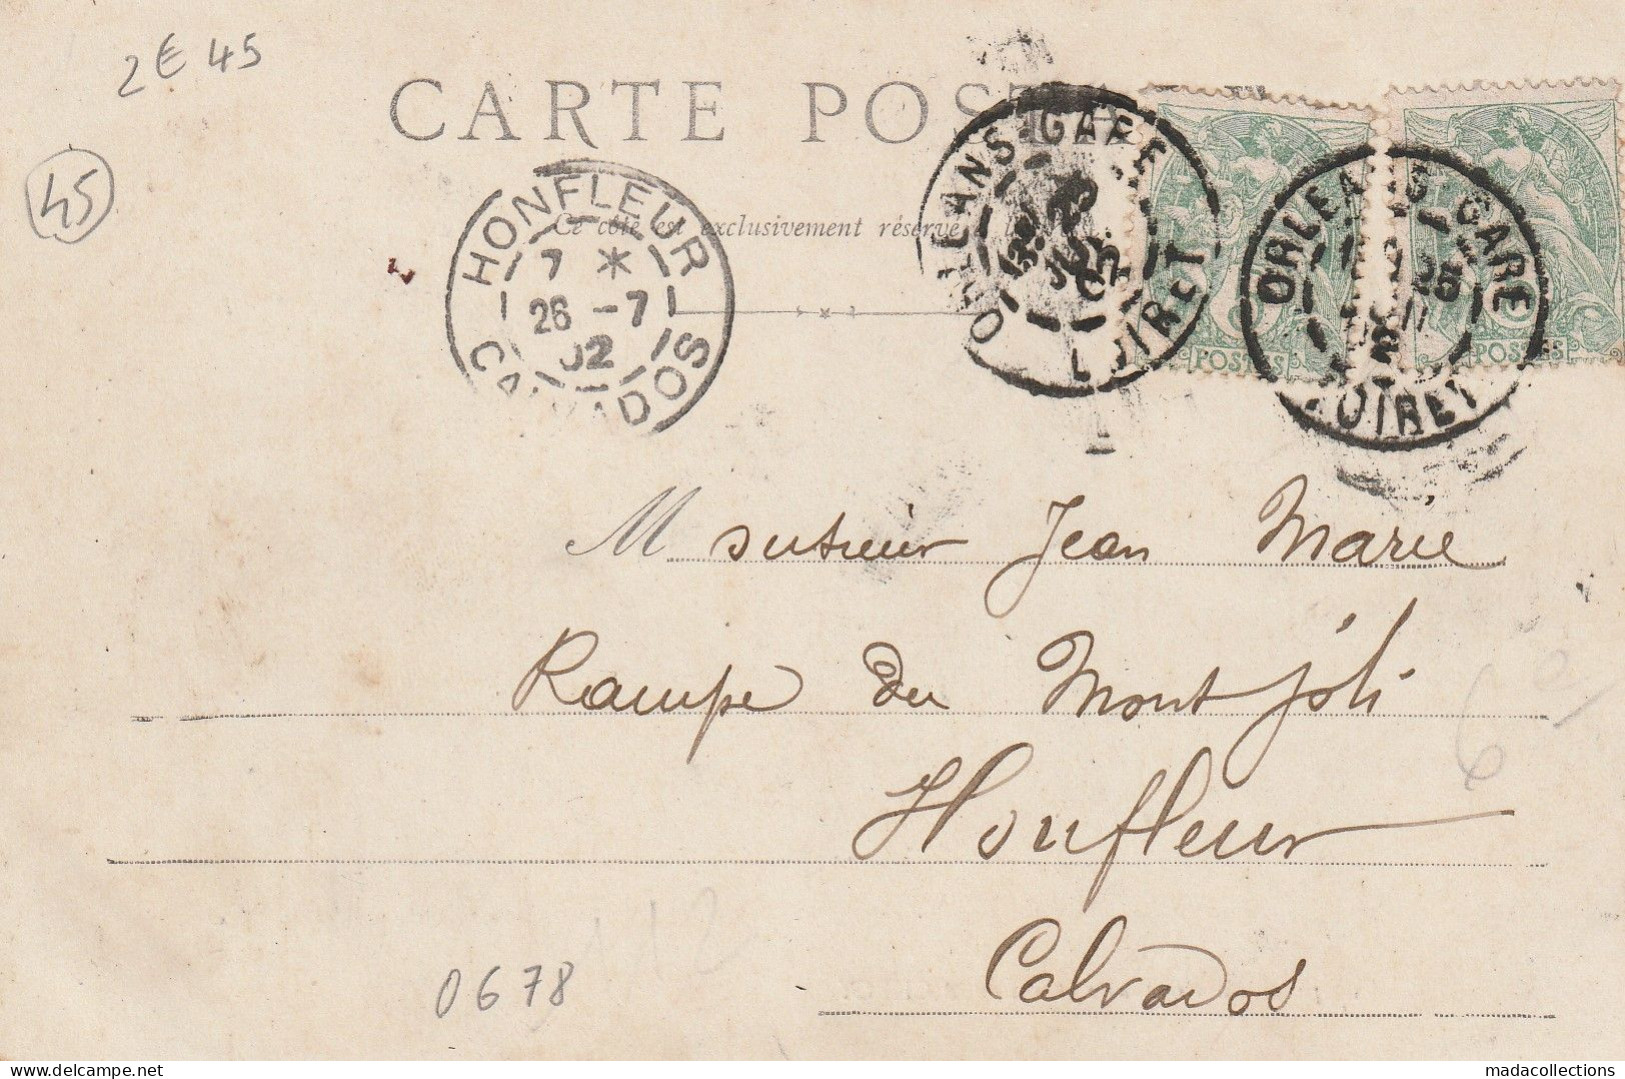 2 E 45
CARTE POSTA
45
HONFLEUR
7 *
26 -7
02
CALVADOS
Ce côté est exclusivement réservé à l'
ORLEANS GARE
LOIRET
ORLEANS GARE
25
LOIRET
POSTES
POSTES
M Jean Marie
Rampe du Mont Joli
Honfleur
Calvados
0678
madacollections